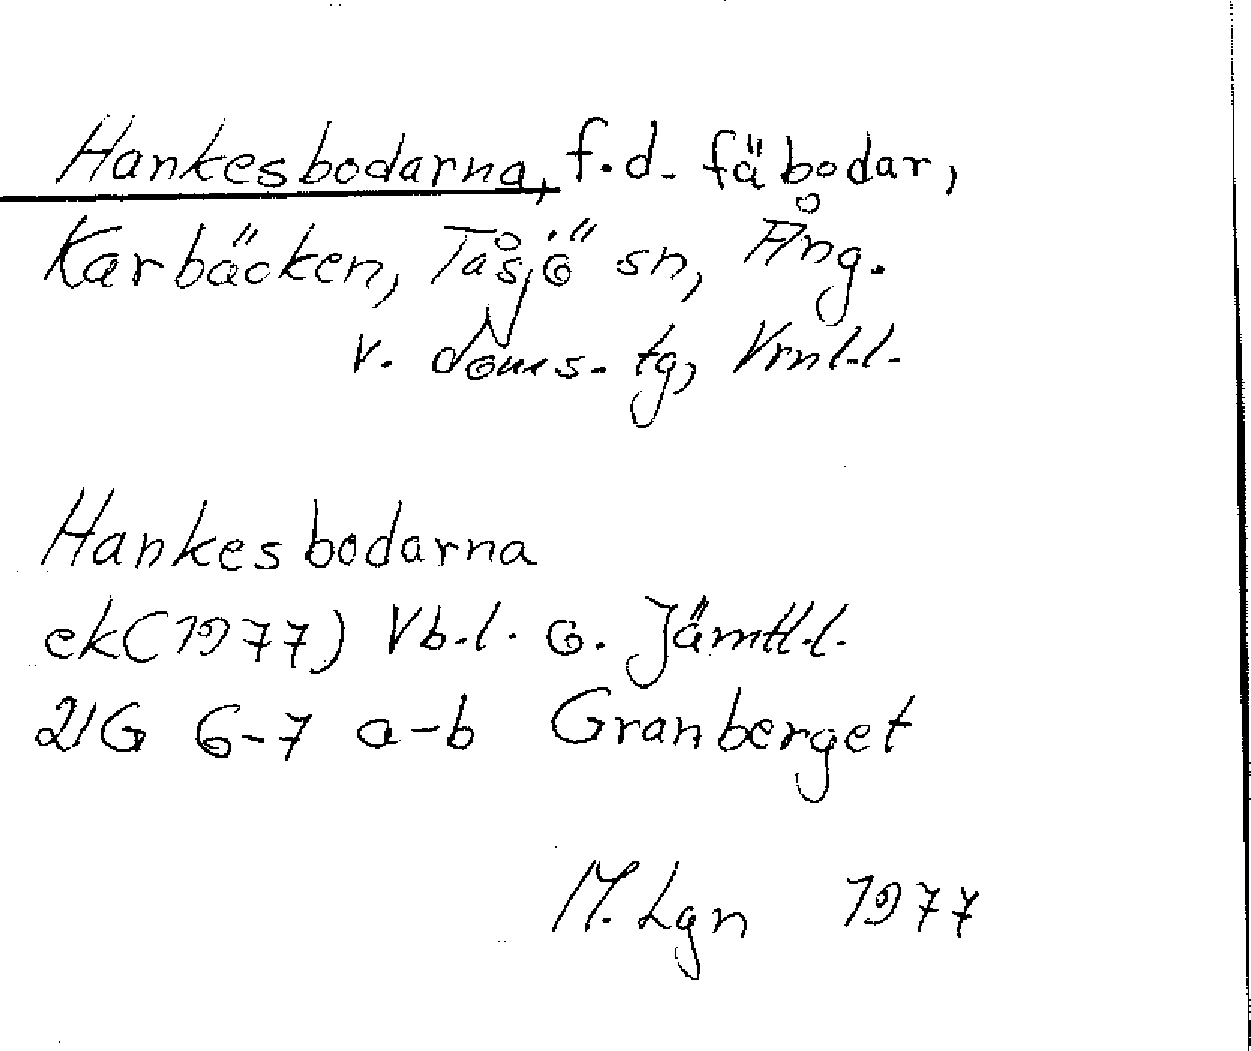 Hankesbodarna, f.d. fäbodar,
Karbäcken, Tåsjö sn, Ång.
v. doms. tg, Vrnl.l.
Hankesbodarna
ek(1977) Vb.l. o. Jämtl.l.
21G 6-7 a-b Granberget
M. Lgn 1977